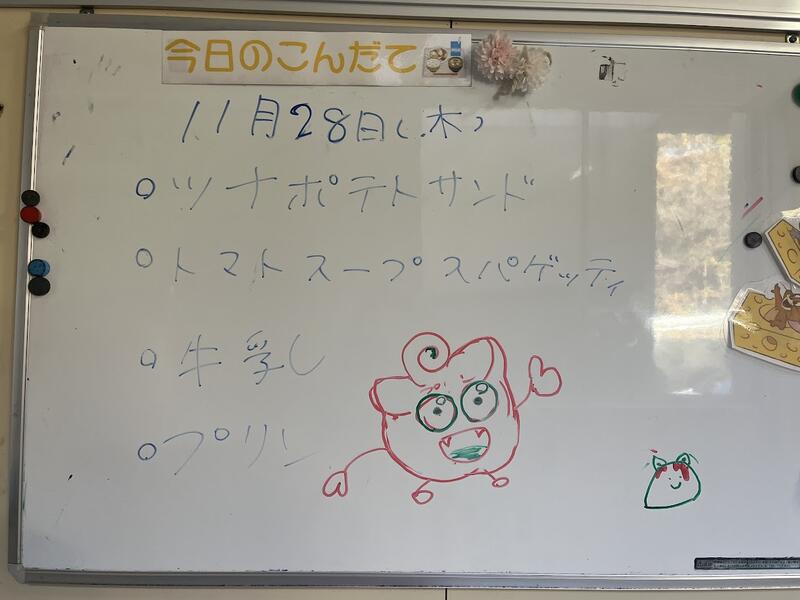 今日のこんだて
11月28日(木)
○ツナポテトサンド
○トマトスープスパゲッティ
○牛乳し
○プリン